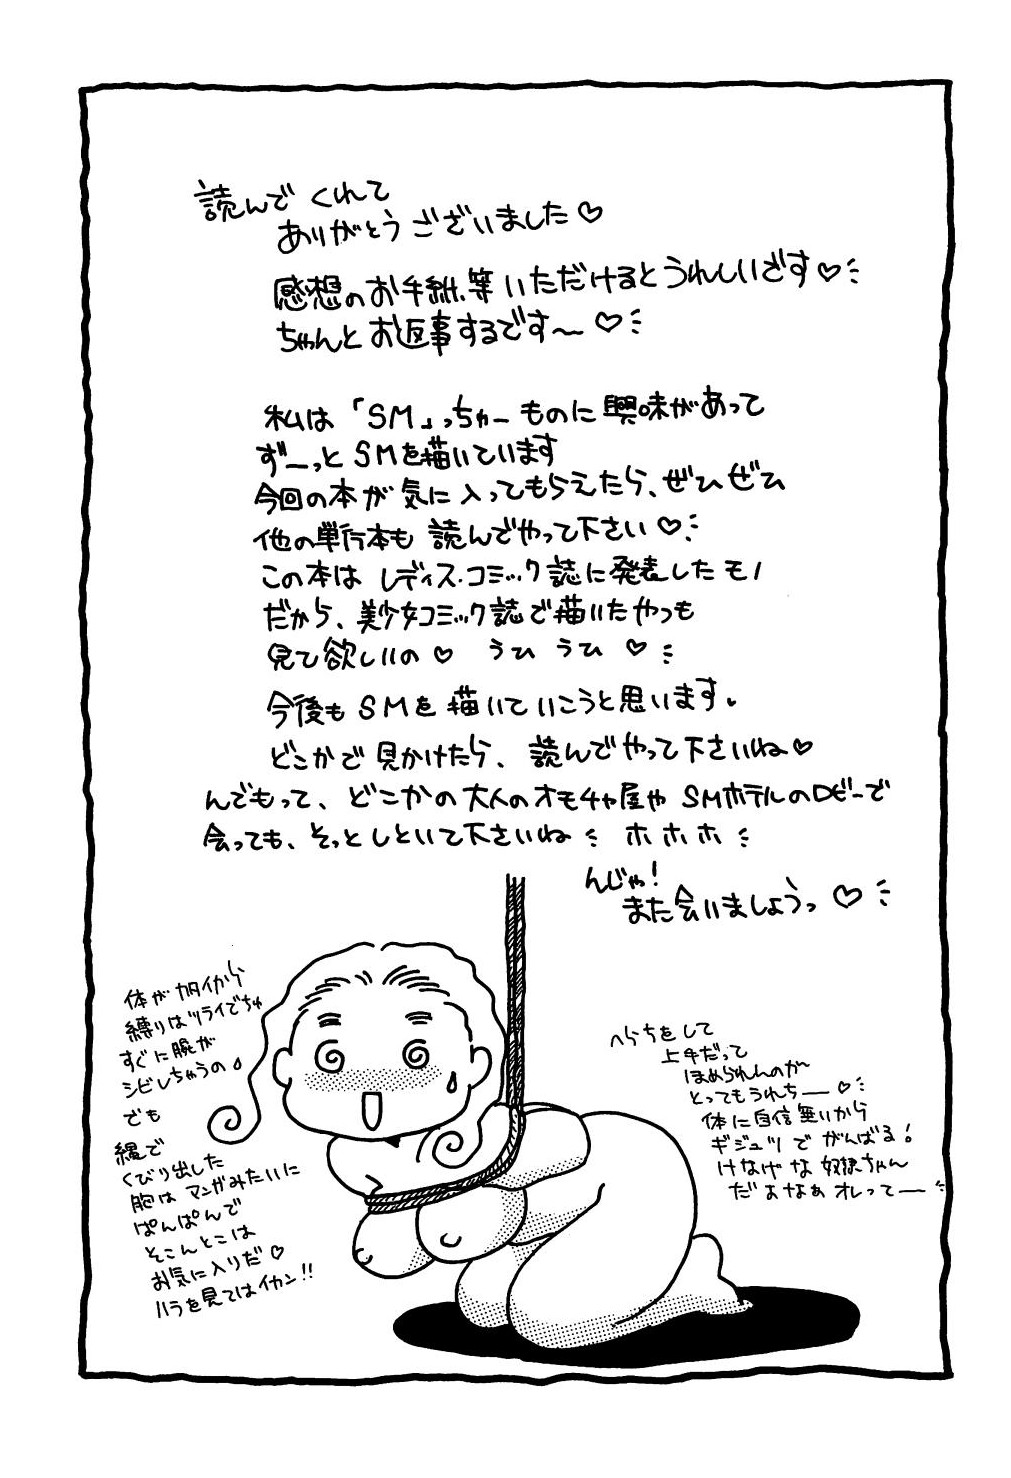 読んで くれて
ありがとう ございました♡
感想のお手紙、等いただけるとうれしいです♡
ちゃんとお返事するです〜♡
私は「SM」っちゅーものに興味があって
ずーっとSMを描いています
今回の本が気に入ってもらえたら、ぜひぜひ
他の単行本も 読んでやって下さい♡
この本は レディス・コミック誌に発表したモノ
だから、美少女コミック誌で描いたやつも
見て欲しいの♡ うひ うひ ♡
今後もSMを描いていこうと思います。
どこかで見かけたら、読んでやって下さいね♡
んでもって、どこかの大人のオモチャ屋や SMホテルのロビーで
会っても、そっとしといて下さいね ホホホ
んじゃ!
また会いましょうっ♡
体がカタイから
縛りはツライでちゅ
すぐに腕が
シビレちゃうの
でも
縄で
くびり出した
胸は マンガみたいに
ぱんぱんで
そこんとこは
お気に入りだ♡
ハラを見てはイカン!!
へらちをして
上手だって
ほめられんのが
とってもうれちー♡
体に自信無いから
ギジュツで がんばる!
けなげな奴隷ちゃん
だよなぁ オレってー